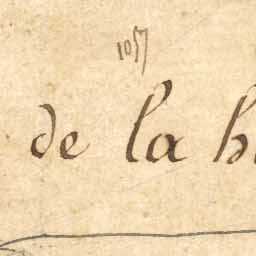 1057
de la